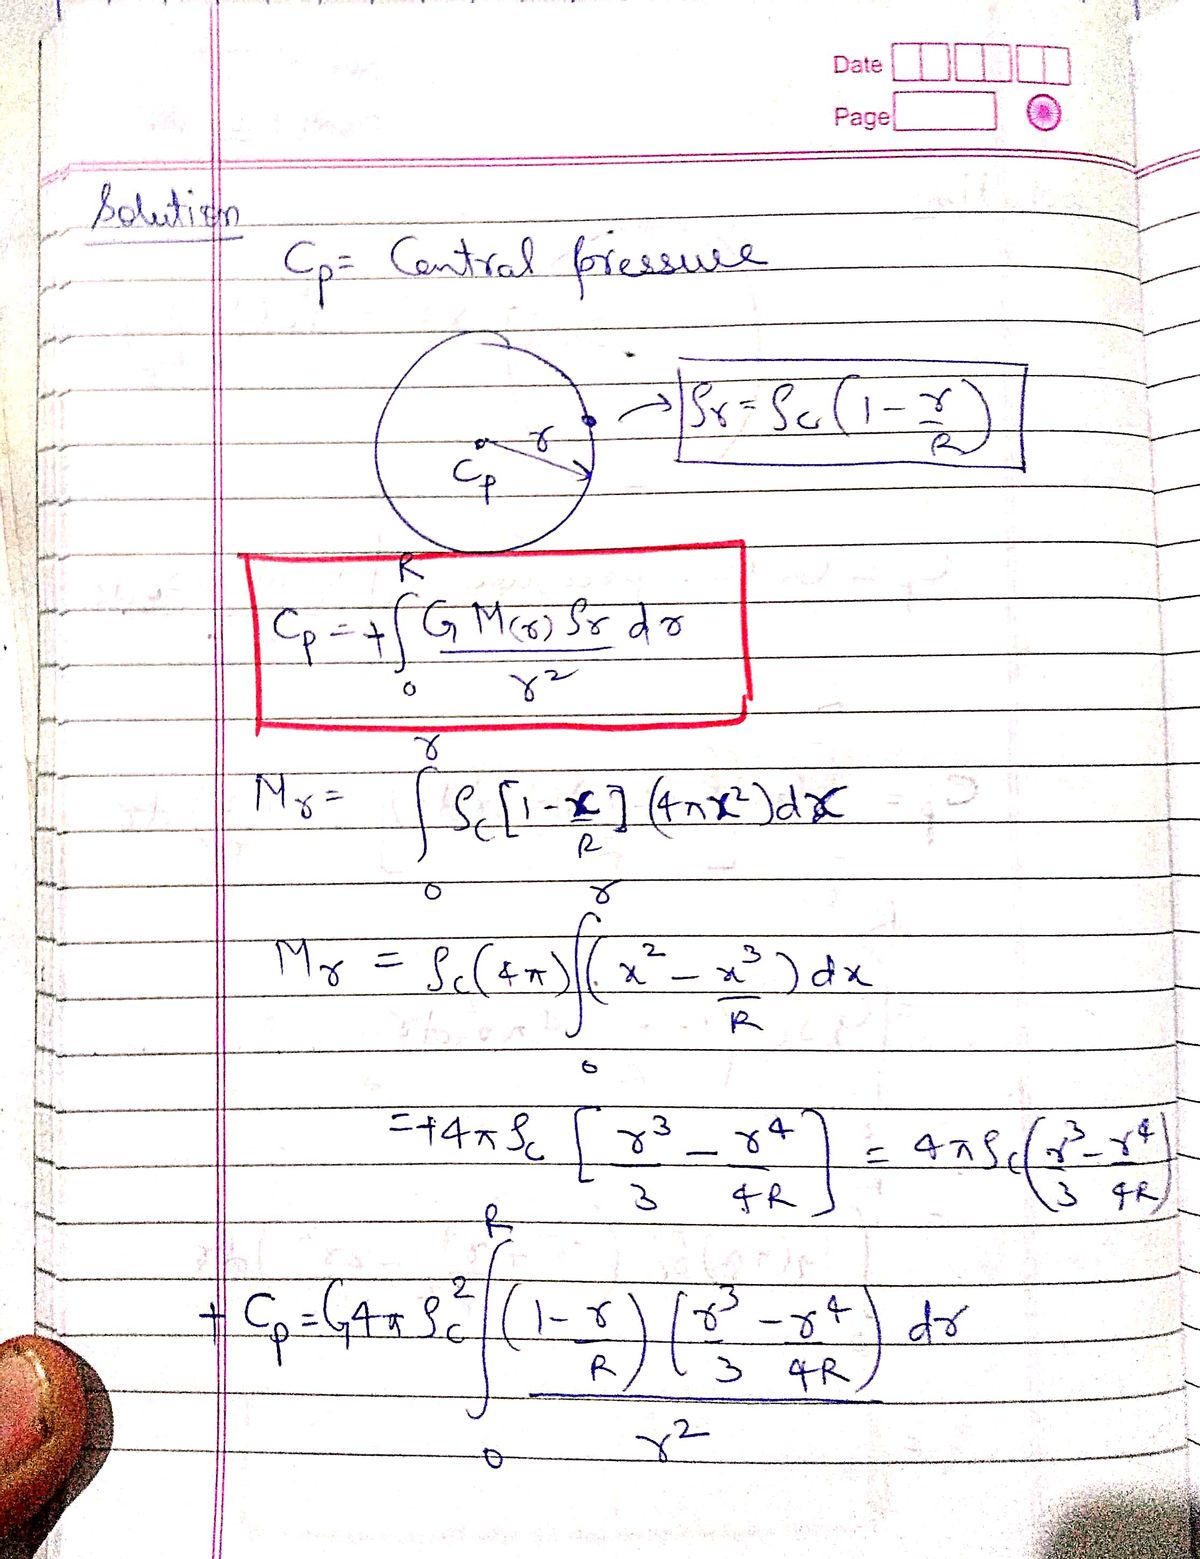 Date
Page
Solution
Cp = Central pressure
r
Cp
→ ρr = ρc (1 - r/R)
Cp = + ∫₀ᴿ G M(r) ρr dr / r²
Mr = ∫₀ʳ ρc [1 - x/R] (4πx²) dx
Mr = ρc (4π) ∫₀ʳ (x² - x³/R) dx
= +4π ρc [r³/3 - r⁴/4R] = 4π ρc (r³/3 - r⁴/4R)
+ Cp = G4π ρc² ∫₀ᴿ (1 - r/R) (r³/3 - r⁴/4R) dr / r²